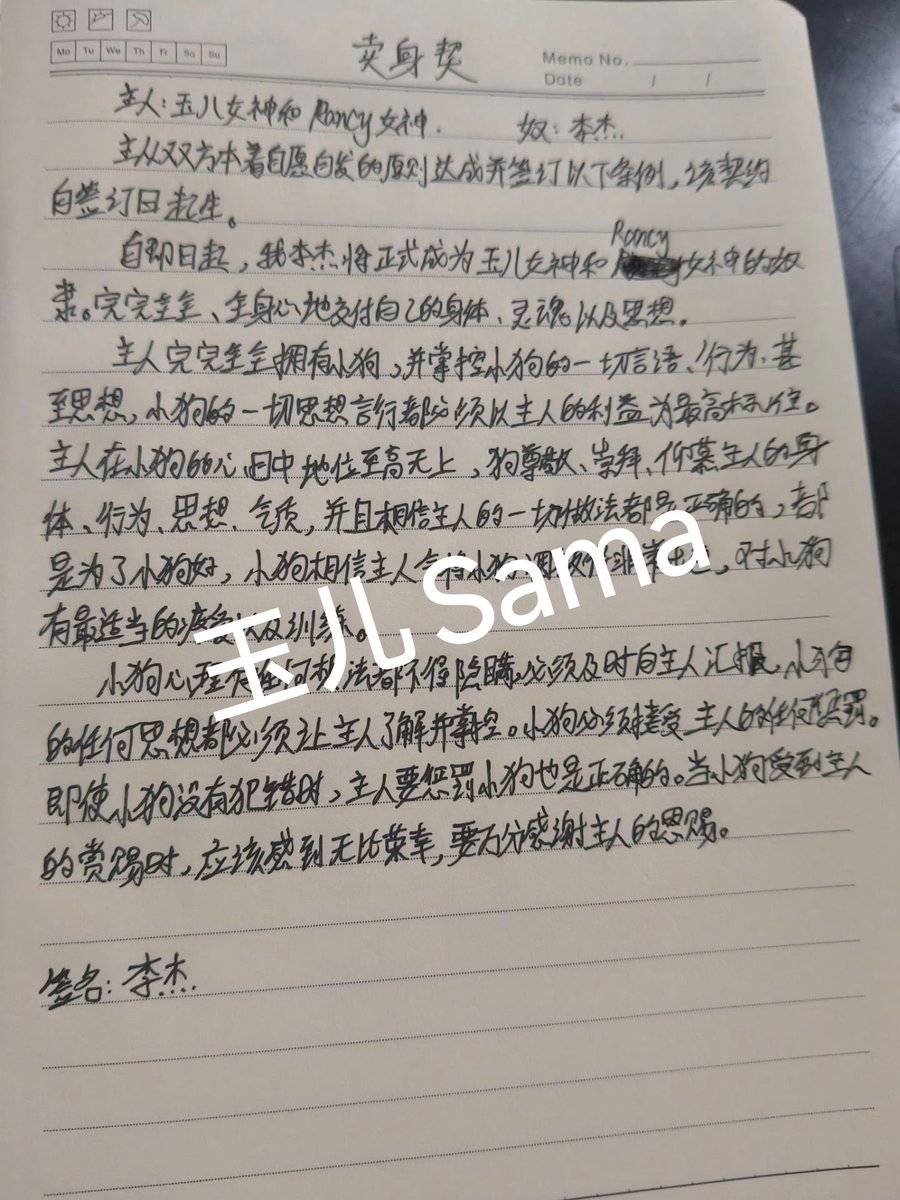 Mo Tu We Th Fr Sa Su
卖身契
Memo No.
Date / /
主人:玉儿女神和Rancy女神. 奴:李杰.
主从双方本着自愿自发的原则达成并签订以下条例,该契约
自签订日起生。
Rancy
自即日起,我李杰将正式成为玉儿女神和女神的奴
隶。完完全全、全身心地交付自己的身体、灵魂以及思想。
主人完完全全拥有小狗,并掌控小狗的一切言语、行为、甚
至思想,小狗的一切思想言行都必须以主人的利益为最高标准。
主人在小狗的心目中地位至高无上,狗尊敬、崇拜、仰慕主人的身
体、行为、思想、气质,并且相信主人的一切做法都是正确的,都
是为了小狗好,小狗相信主人会将小狗调,对小狗
有最适当的以及训练。
玉儿Sama
小狗心里有任何想法都不得隐瞒必须及时向主人汇报,小狗
的任何思想都必须让主人了解并掌控。小狗必须接受主人的任何惩罚。
即使小狗没有犯错时,主人要惩罚小狗也是正确的。当小狗受到主人
的赏赐时,应该感到无比荣幸,要万分感谢主人的恩赐。
签名:李杰.